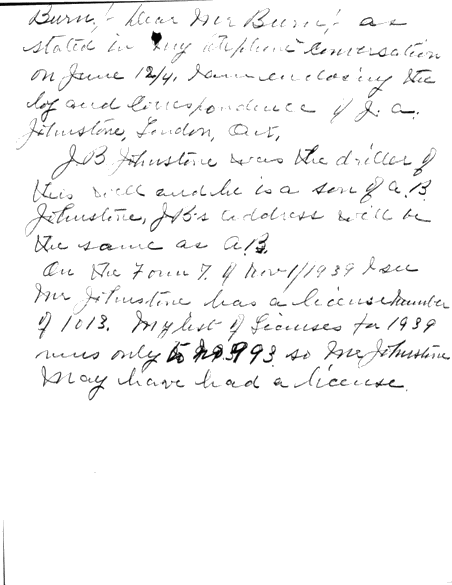 Burn,! Dear Mr Burn,! as
stated in my telephone conversation
on June 12/41. I am enclosing the
log and Correspondence of J. A.
Johnstone, London, Ont,
J B Johnstone was the driller of
this well and he is a son of A. B.
Johnstone, JB's address will be
the same as A.B.
On the Form 7. of Nov 1/1939 I see
Mr Johnstone has a license number
of 1013. My list of Licenses for 1939
runs only to No 993 so Mr Johnstone
may have had a license.